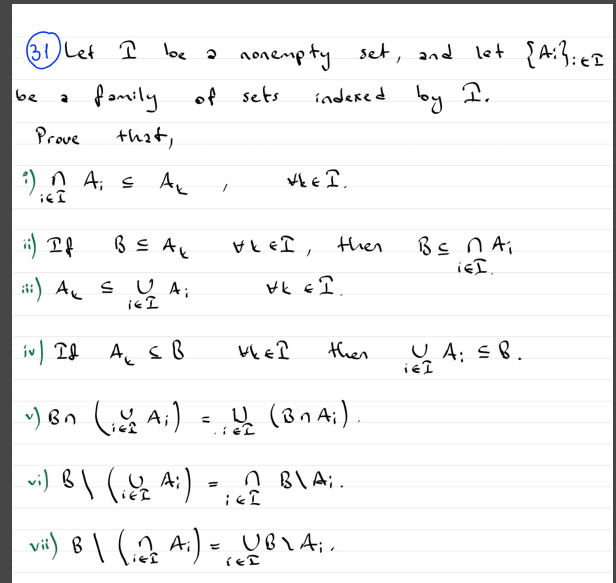 31) Let I be a nonempty set, and let {Ai}i∈I
be a family of sets indexed by I.
Prove that,
i) ∩i∈I Ai ⊆ Ak , ∀k∈I.
ii) If B ⊆ Ak ∀k∈I, then B ⊆ ∩i∈I. Ai
iii) Ak ⊆ ∪i∈I Ai ∀k ∈ I.
iv) If Ak ⊆ B ∀k∈I then ∪i∈I Ai ⊆ B.
v) B∩ (∪i∈I Ai) = ∪i∈I (B∩Ai).
vi) B\ (∪i∈I Ai) = ∩i∈I B\Ai.
vii) B \ (∩i∈I Ai) = ∪i∈I B\Ai.